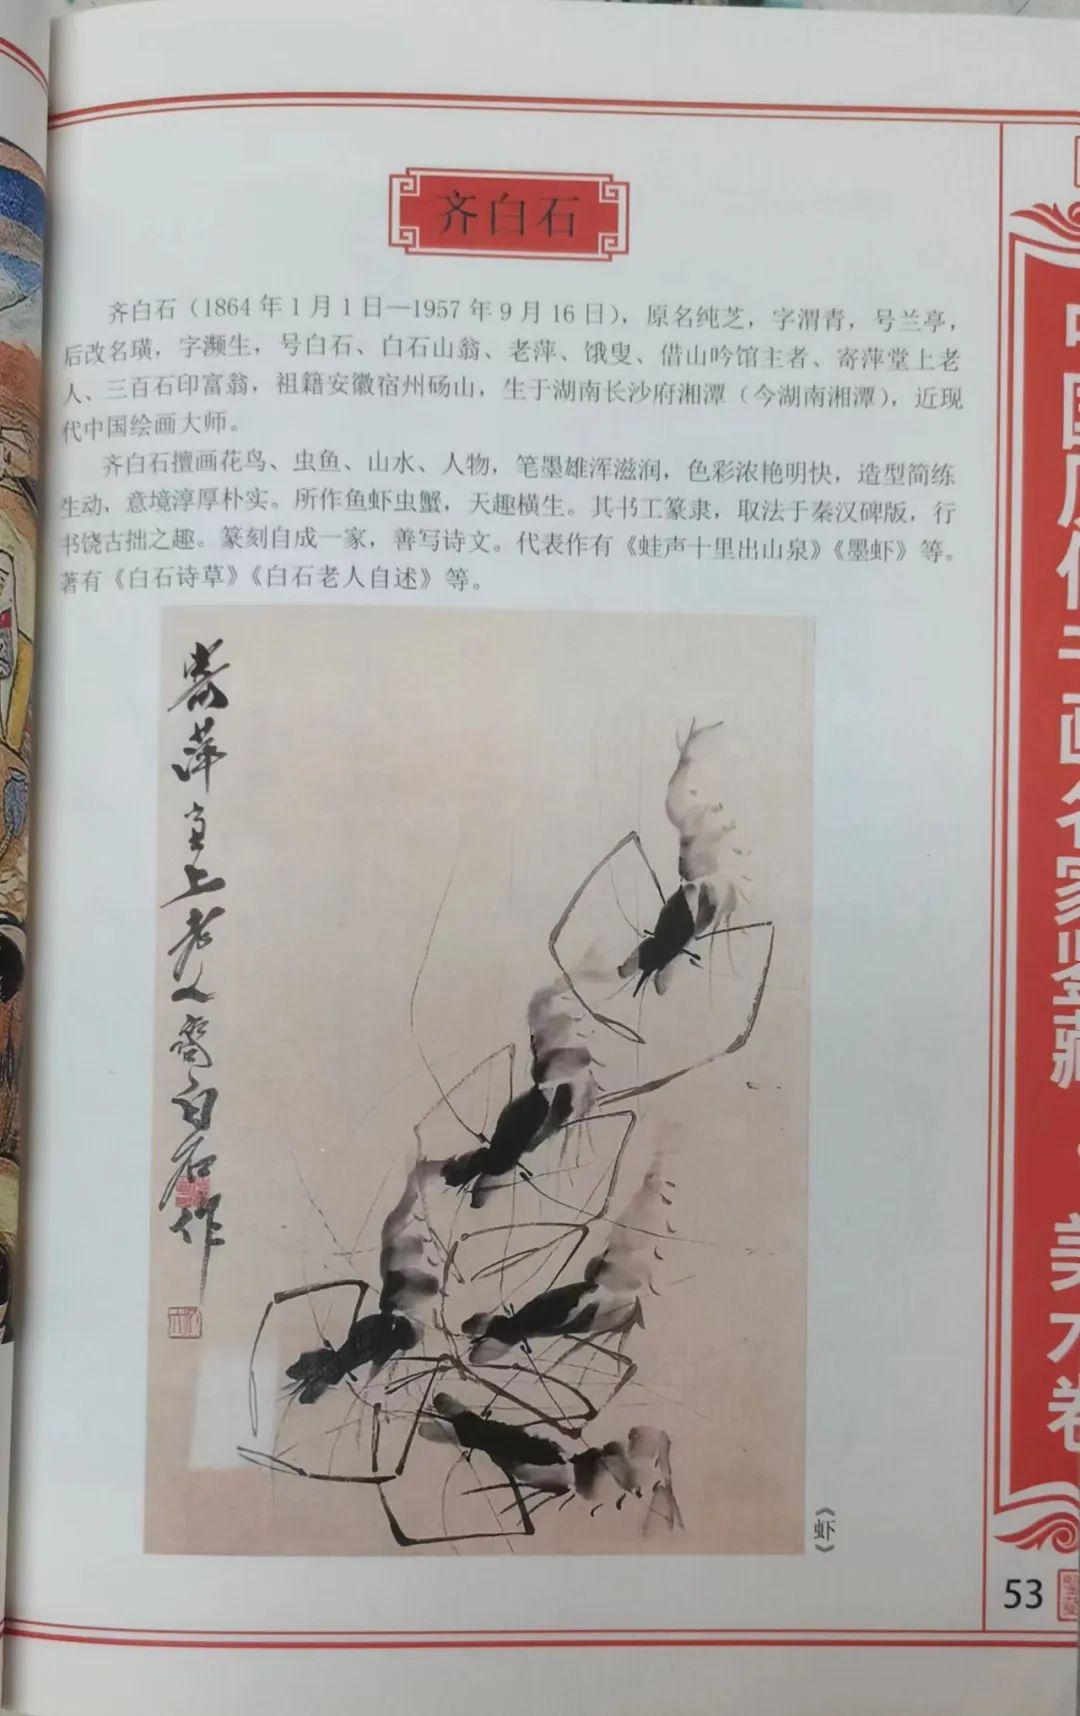 齐白石
齐白石（1864年1月1日—1957年9月16日），原名纯芝，字渭青，号兰亭，
后改名璜，字濒生，号白石、白石山翁、老萍、饿叟、借山吟馆主者、寄萍堂上老
人、三百石印富翁，祖籍安徽宿州砀山，生于湖南长沙府湘潭（今湖南湘潭），近现
代中国绘画大师。
齐白石擅画花鸟、虫鱼、山水、人物，笔墨雄浑滋润，色彩浓艳明快，造型简练
生动，意境淳厚朴实。所作鱼虾虫蟹，天趣横生。其书工篆隶，取法于秦汉碑版，行
书饶古拙之趣。篆刻自成一家，善写诗文。代表作有《蛙声十里出山泉》《墨虾》等。
著有《白石诗草》《白石老人自述》等。
寄萍堂上老人齊白石作
《虾》
画名家鉴藏·美术卷
53